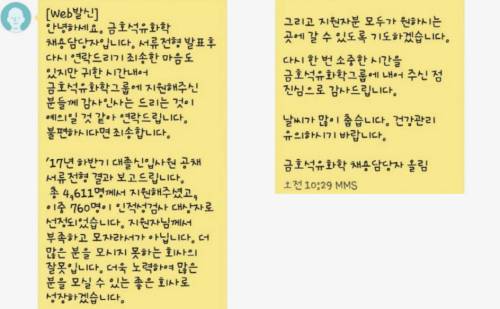 [Web발신]
안녕하세요. 금호석유화학
채용담당자입니다. 서류전형 발표후
다시 연락드리기 죄송한 마음도
있지만 귀한 시간내어
금호석유화학그룹에 지원해주신
분들께 감사인사는 드리는 것이
예의일 것 같아 연락드립니다.
불편하시다면 죄송합니다.

'17년 하반기 대졸신입사원 공채
서류전형 결과 보고드립니다.
총 4,611명께서 지원해주셨고,
이중 760명이 인적성검사 대상자로
선정되었습니다. 지원자님께서
부족하고 모자라서가 아닙니다. 더
많은 분을 모시지 못하는 회사의
잘못입니다. 더욱 노력하여 많은
분을 모실 수 있는 좋은 회사로
성장하겠습니다.

그리고 지원자분 모두가 원하시는
곳에 갈 수 있도록 기도하겠습니다.

다시 한 번 소중한 시간을
금호석유화학그룹에 내어 주신 점
진심으로 감사드립니다.

날씨가 많이 춥습니다. 건강관리
유의하시기 바랍니다.

금호석유화학 채용담당자 올림
오전 10:29 MMS